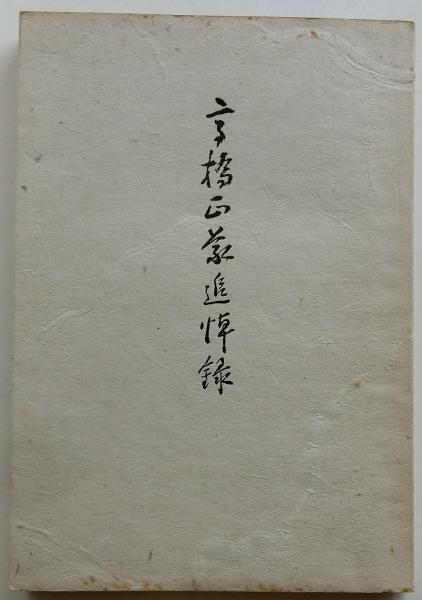 高橋正義追悼録